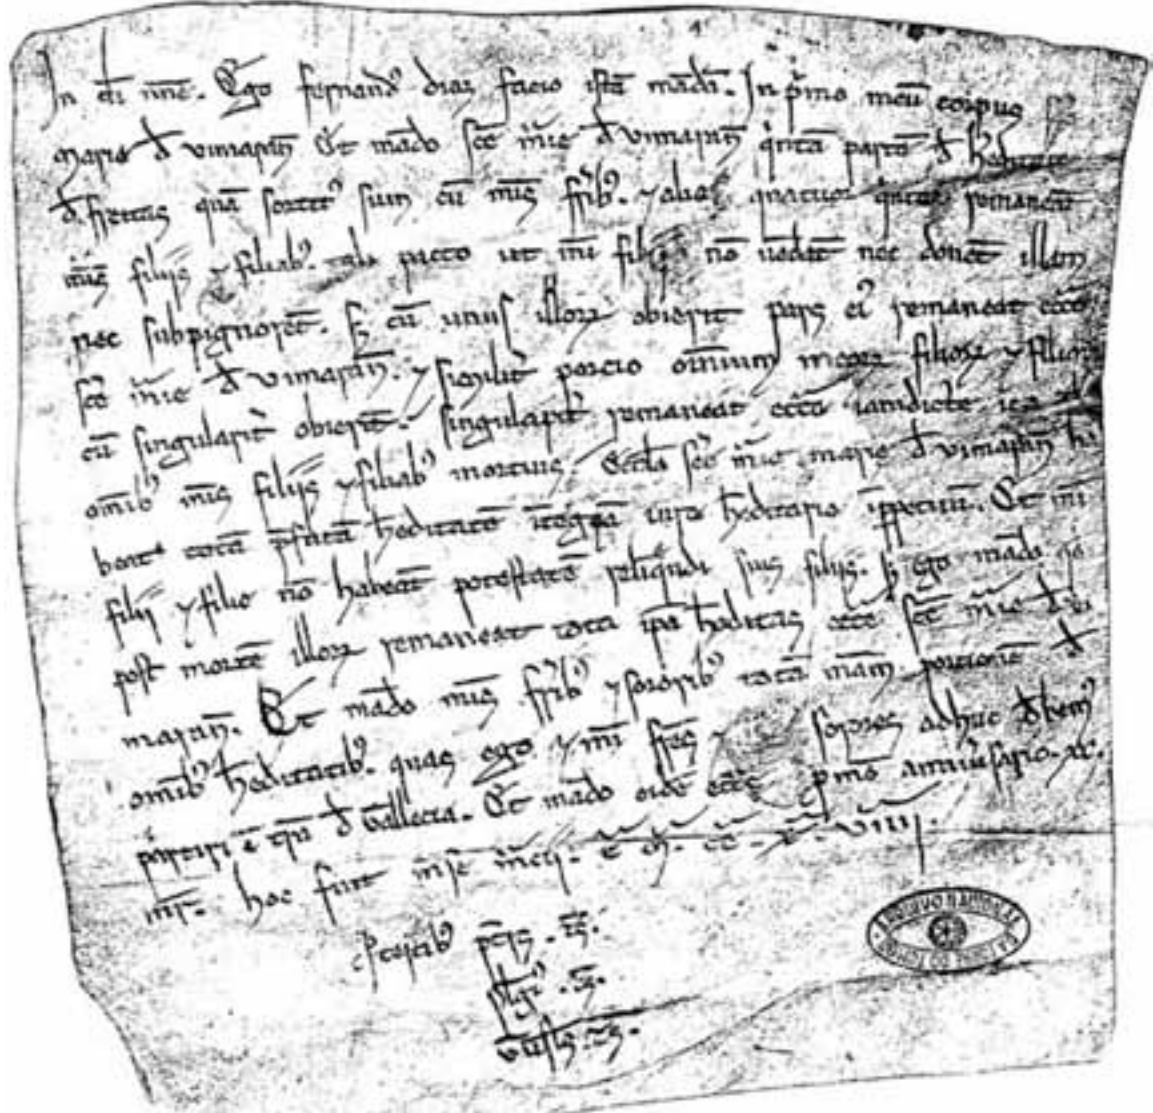 In dei nne. Ego fernand' diaz facio istā mādā. In p'mo meū corpus
marie d' vimarañ Et mādo sce m'ie d' vimarañ q'ntā partē d' h'editate
d' ffreitas quā sortit' sum cū meis frīb'. y alias quatuor q'ntas remaneāt
meis filiis y filiab'. tali pacto ut mī filii nō vēdāt nec donēt illam
nec subpignorēt. sȝ cū unus illoꝝ obierit pars ei' remaneat eccē
sce m'ie d' vimarañ. y similit' porcio omnium meoꝝ filioꝝ y filiaꝝ
cū singularit' obierit. singularit' remaneat eccē iamdicte ita
omīb' meis filiis y filiab' mortuis. Eccla sce marie d' vimarañ ha
beat totā p'fatā h'editatē ītegrā iure h'editario ī ppetuū. Et mī
filii y filie nō habeāt potestatē relīq'ndi suis filiis. sȝ ego mādo
post mortē illoꝝ remaneat tota ipa h'editas eccē sce m'ie d' vi
marañ. Et mādo meis frīb' y sororib' totā meam portionē d'
omīb' h'editatib'. quas ego y mī frēs y sorores adhuc d'bem'
partiri ī t'ra d' Gallecia. Et mādo eidē eccē p'mo anniv'sario. x.
mr. hoc fuit m'se m'cii. E. M. CC. X. VIIII.
p'sentib' petrus. ts.
pelagi'. ts.
ts.
ARQUIVO NACIONAL DA TORRE DO TOMBO